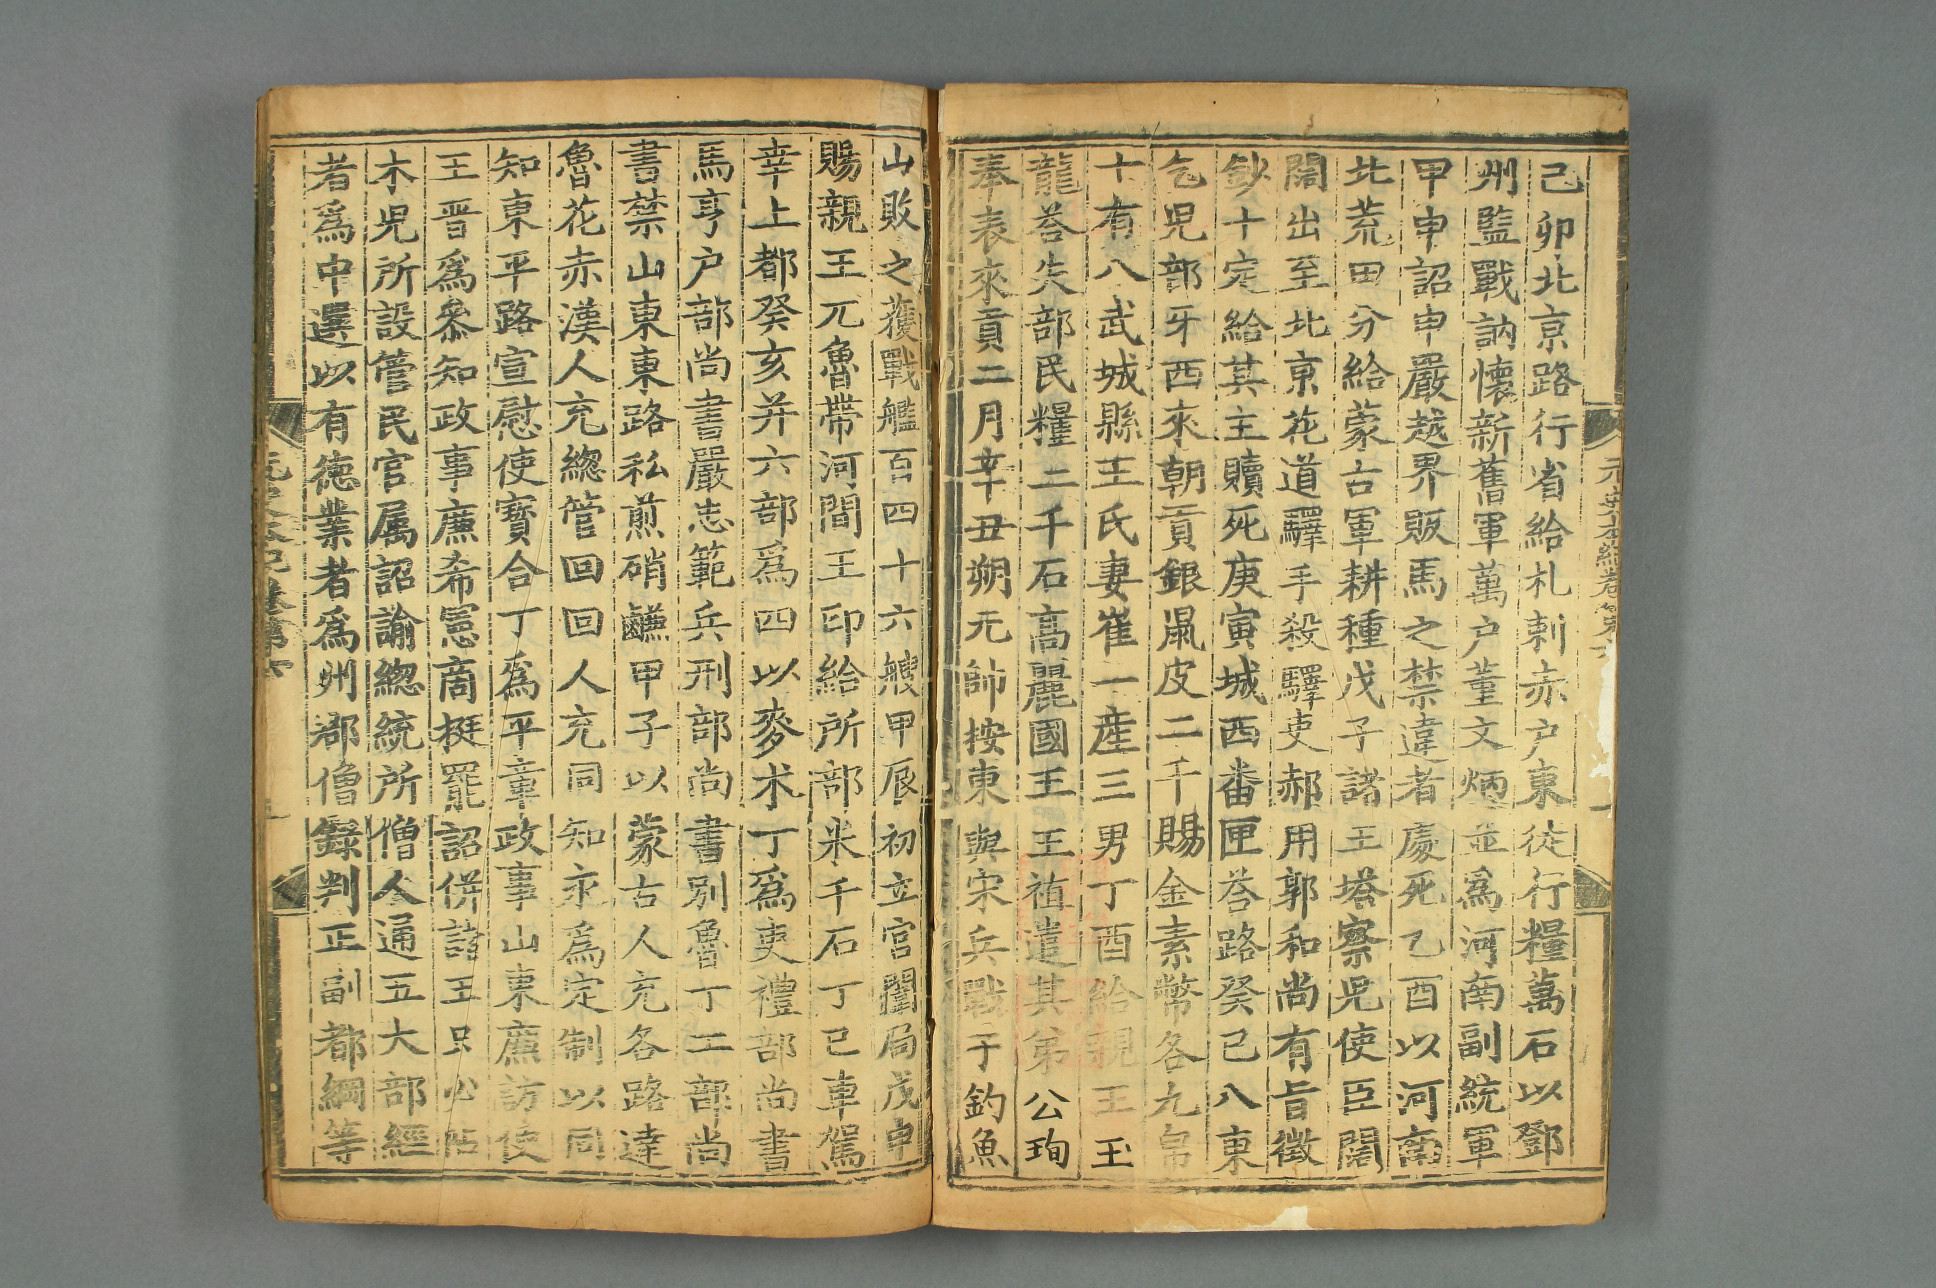 己卯北京路行省給札剌赤户東徙行糧萬石以鄧
州監戰訥懷新舊軍萬户董文炳並爲河南副統軍
甲申詔申嚴越界販馬之禁違者處死乙酉以河南
北荒田分給蒙古軍耕種戊子諸王塔察児使臣闊
闊出至北京花道驛手殺驛吏郝用郭和尚有旨徵
鈔十定給其主贖死庚寅城西番匣荅路癸己八東
乞児部牙西來朝貢銀鼠皮二千賜金素幣各九帛
十有八武城縣王氏妻崔一産三男丁酉給親王玉
龍荅失部民糧二千石高麗國王王禃遣其第公珣
奉表來貢二月辛丑朔元帥按東與宋兵戰于釣魚
山敗之獲戰艦百四十六艘甲辰初立宮闈局戊申
賜親王兀魯帶河間王印給所部米千石丁已車駕
幸上都癸亥并六部爲四以麥术丁爲吏禮部尚書
馬亨户部尚書嚴忠範兵刑部尚書別魯丁工部尚
書禁山東東路私煎硝鹻甲子以蒙古人充各路達
魯花赤漢人充緫管回回人充同知永爲定制以同
知東平路宣慰使寶合丁爲平章政事山東廉訪使
王晋爲叅知政事廉希憲商挺罷詔併諸王只必帖
木児所設管民官属詔諭緫統所僧人通五大部經
者爲中選以有德業者爲州郡僧録判正副都綱等